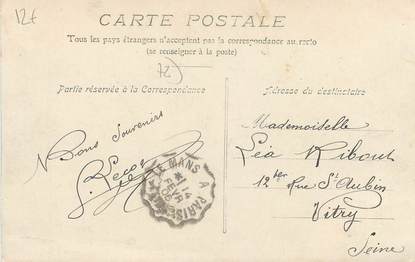 12f
CARTE POSTALE
Tous les pays étrangers n'acceptent pas la correspondance au recto
(se renseigner à la poste)
72
Partie réservée à la Correspondance
Bons Souvenirs
LE MANS A PARIS
14
FEVR
Adresse du destinataire
Mademoiselle
Léa Ribout
12 ter Rue St Aubin
Vitry
Seine